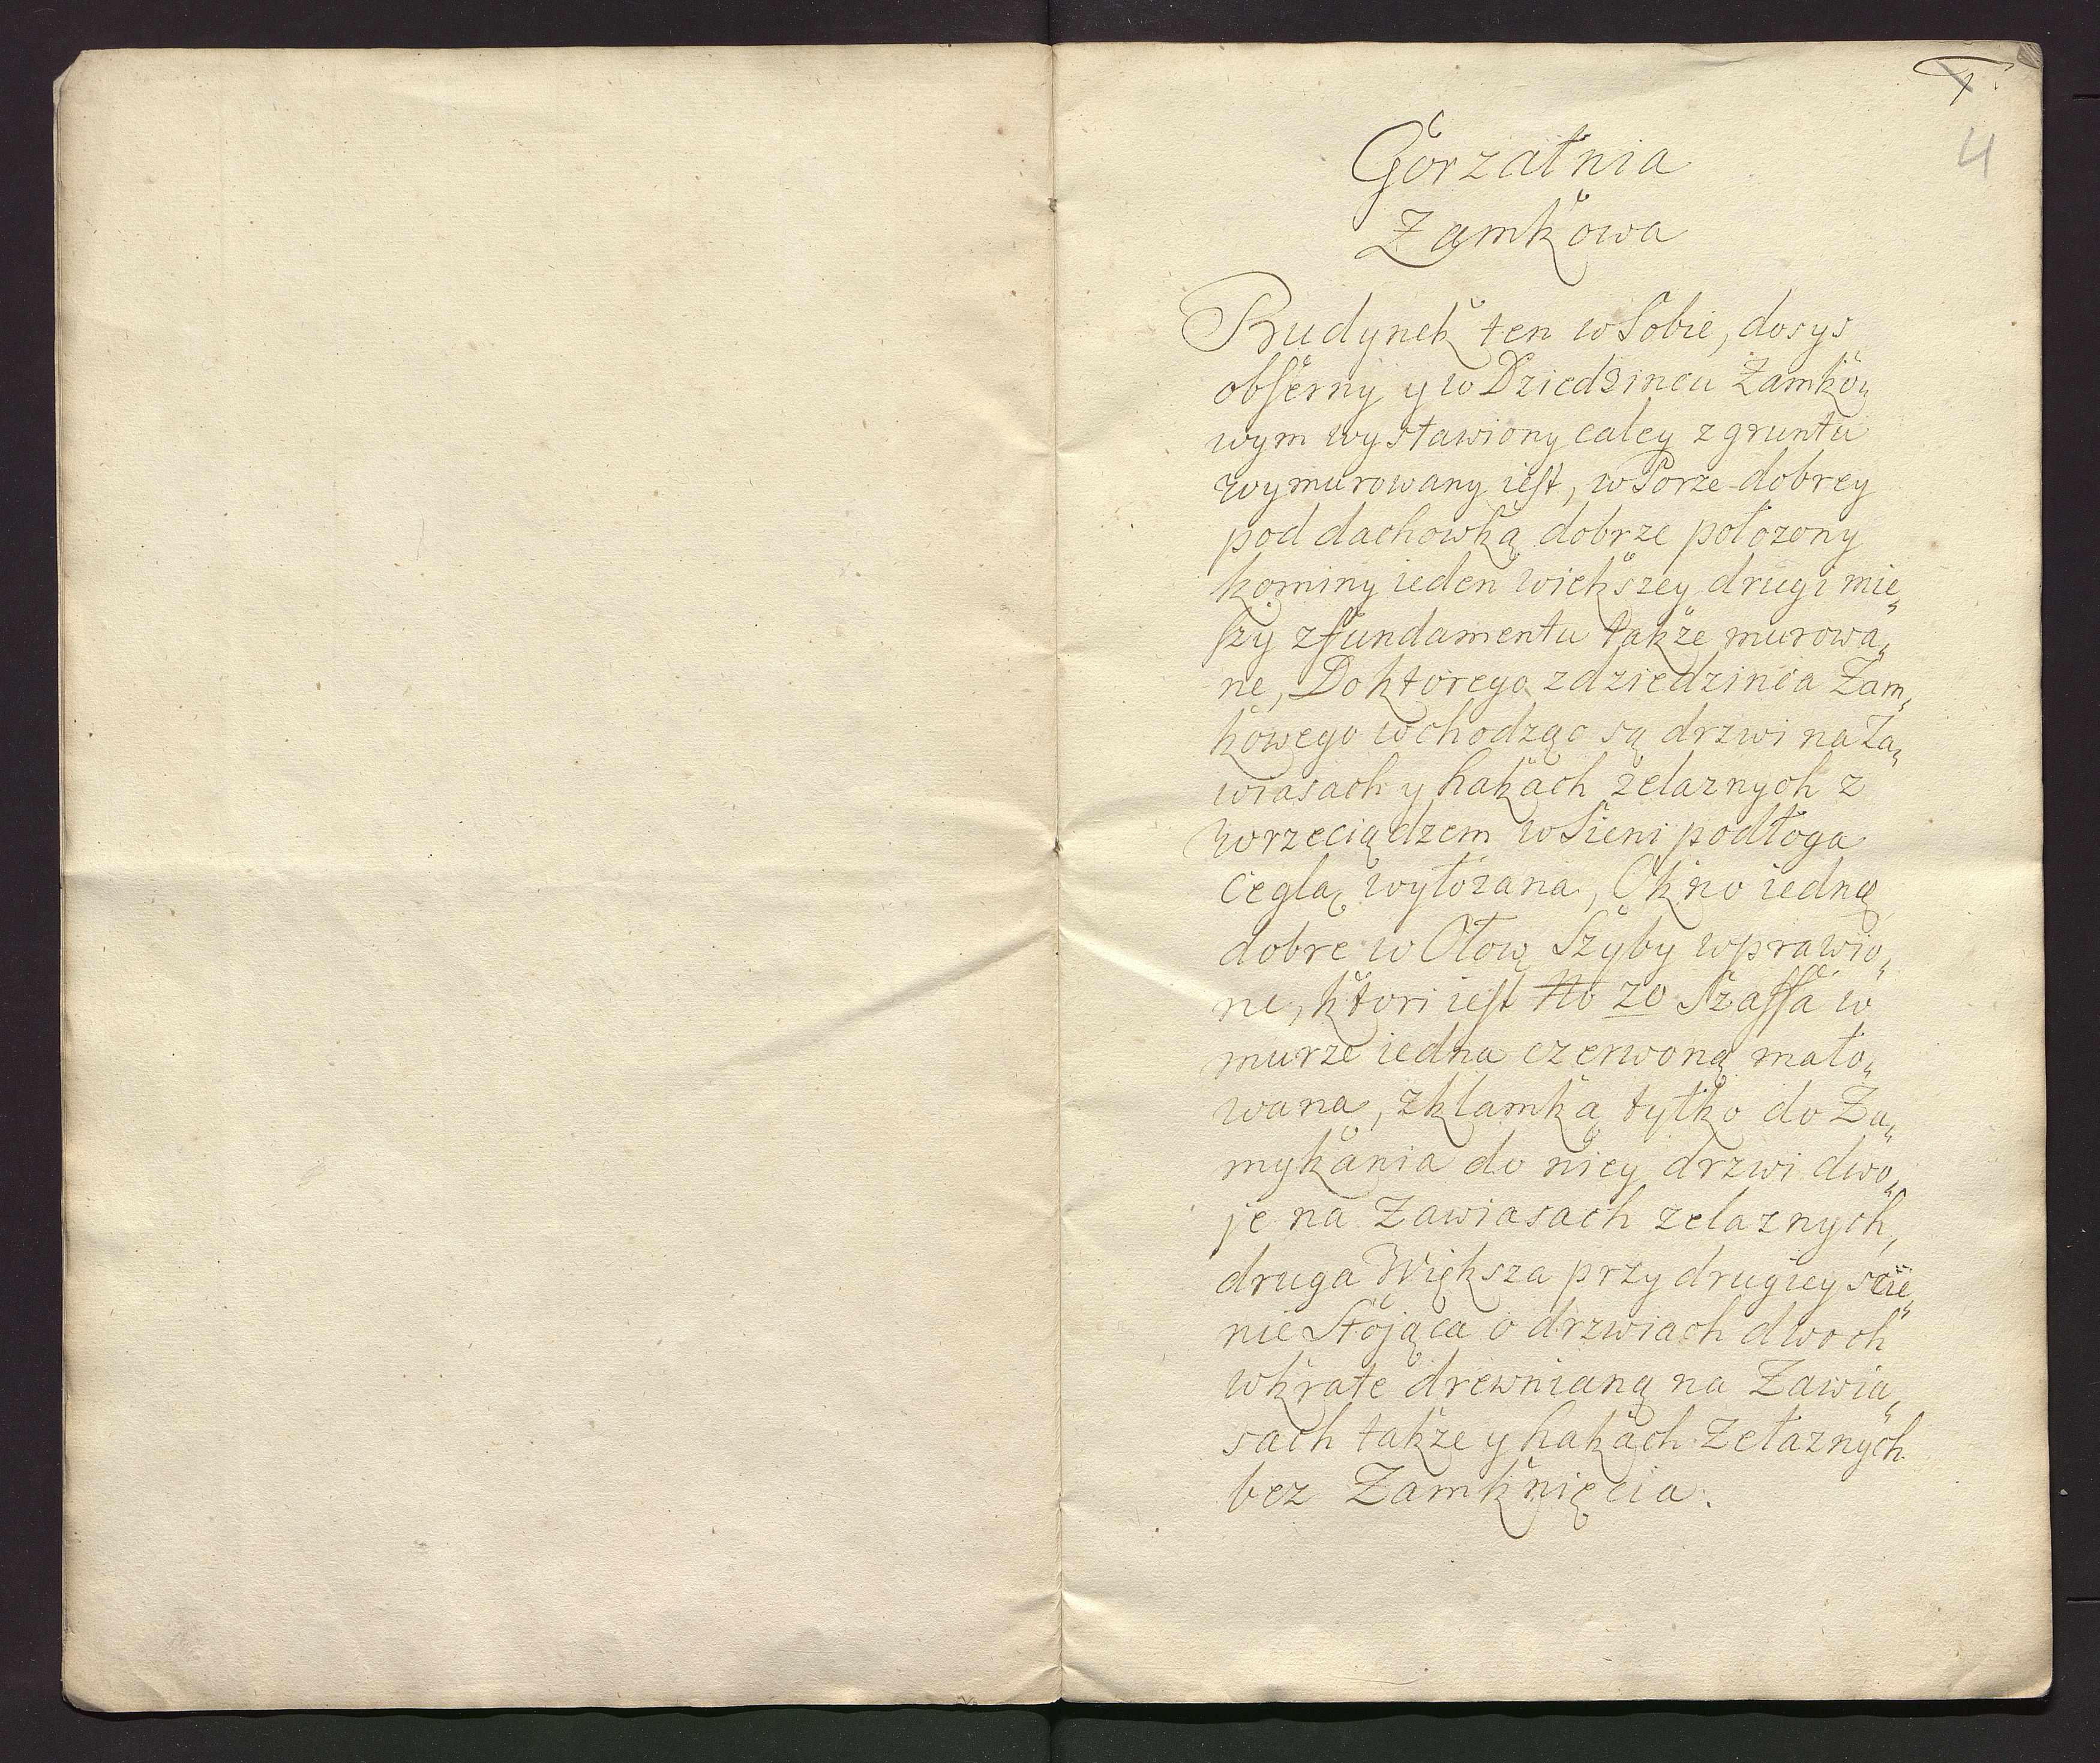 4
Gorzałnia
Zamkowa
Budynek ten w Sobie, dosys
obserny y w Dziedzincu Zamko„
wym wystawiony caley z gruntu
wymurowany iest, w Porze dobrey
pod dachowką dobrze położony
kominy ieden wiekszey drugi mie„
szy z fundamentu także murowa„
ne, Do ktorego z dziedzinca Zam„
kowego wchodząc są drzwi na Za„
wiasach y hakach żelaznych z
wrzeciądzem w Sieni podłoga
Ceglą wyłożana, Okno iedną
dobre w Ołow Szyby wprawio„
ne, ktori iest No 20 Szaffa w
murze iedna czerwoną malo„
wana, z klamką tylko do Za„
mykania do niey drzwi dwo„
je na Zawiasach zelaznych,
druga Większa przy drugiey scie„
nie Stojąca o drzwiach dwoch
w krate drewnianą na Zawia„
sach także y hakach Zelaznych
bez Zamknięcia.